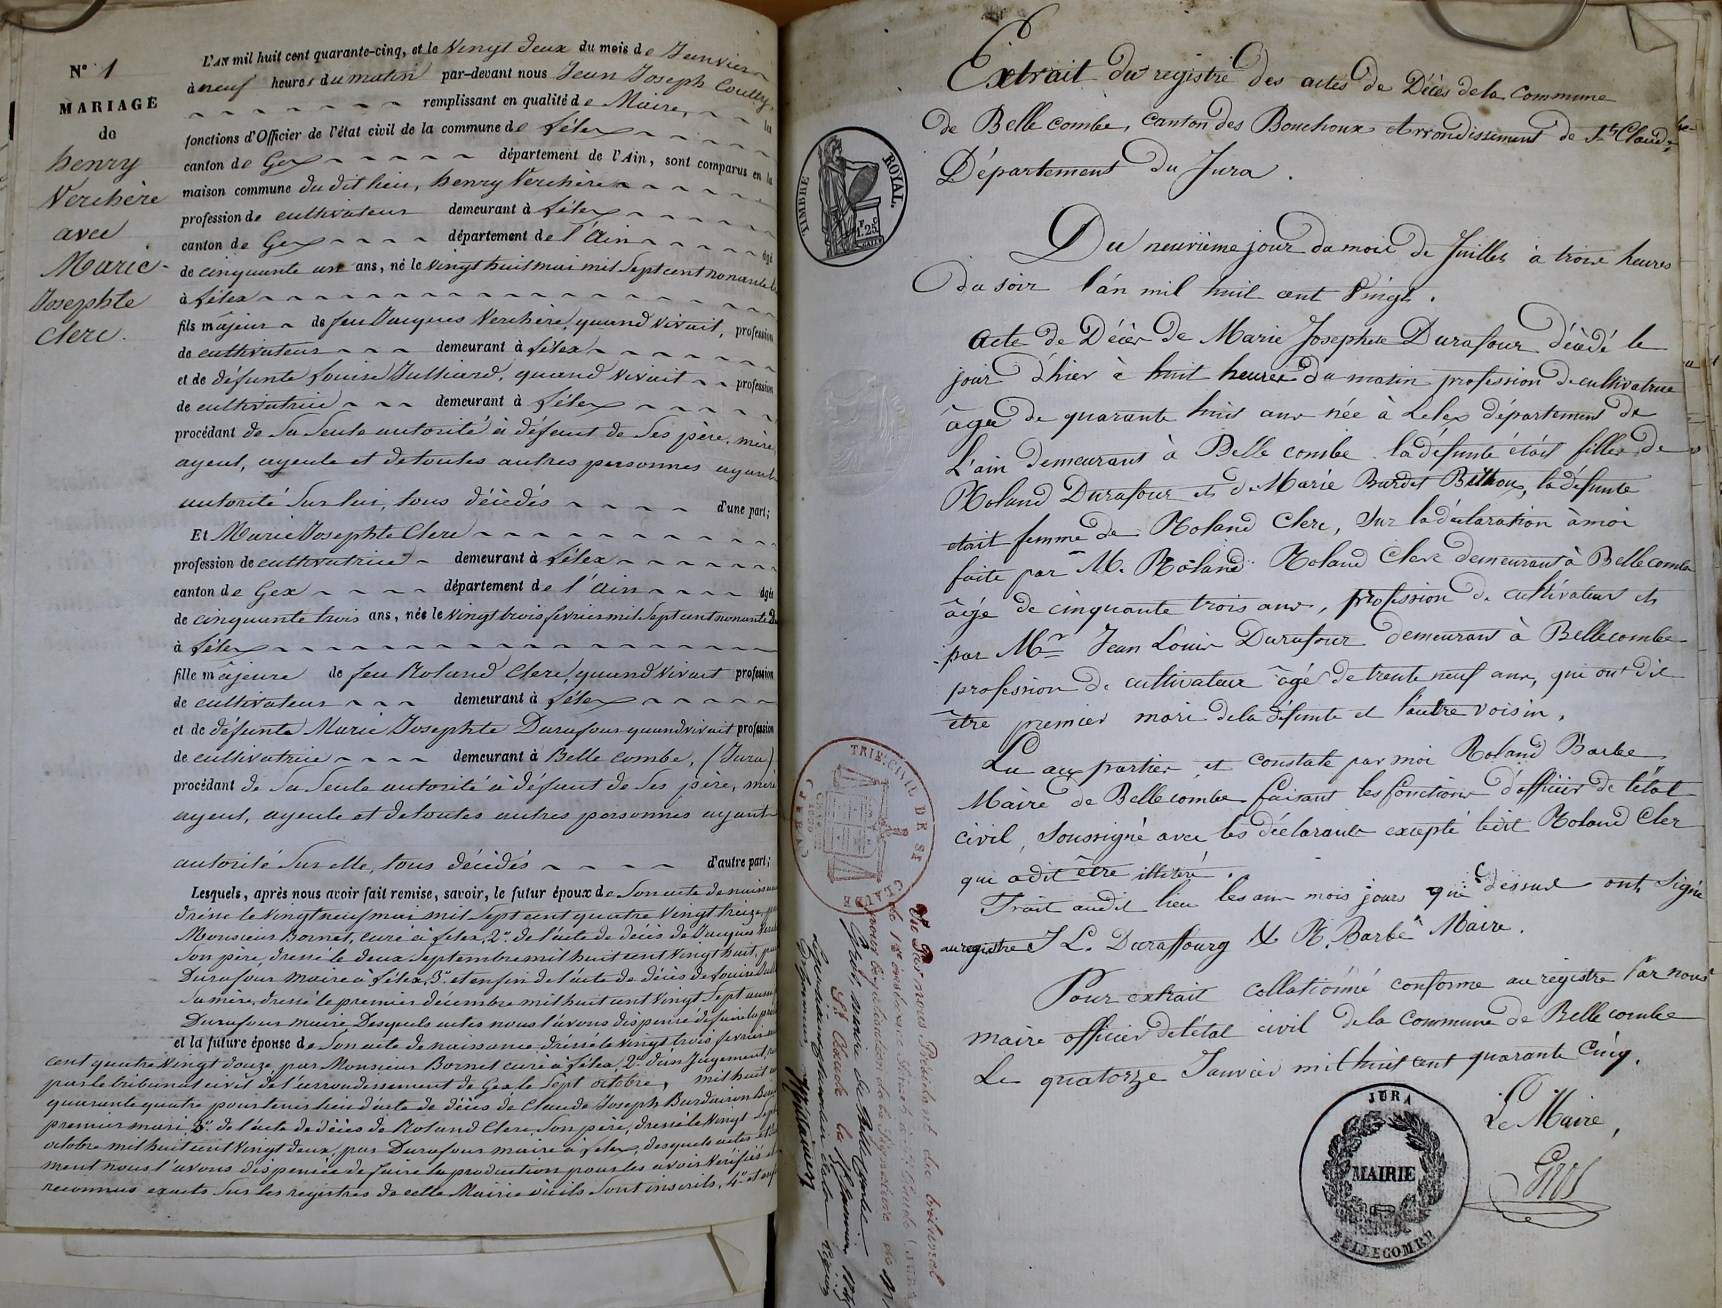 N° 1
MARIAGE
de
henry
Verchère
avec
Marie-
Josephte
Clerc.
L'AN mil huit cent quarante-cinq, et le Vingt deux du mois de Janvier
à neuf heures du matin par-devant nous Jean Joseph
remplissant en qualité de Maire, les
fonctions d'Officier de l'état civil de la commune de Lélex
canton de Gex département de l'Ain, sont comparus en la
maison commune du dit lieu, henry Verchère
profession de cultivateur demeurant à Lélex
canton de Gex département de l'Ain âgé
de cinquante un ans, né le vingt huit mai mil sept cent nonante
à Lélex
fils majeur de feu Jacques Verchère, quand vivait, profession
de cultivateur demeurant à Lélex
et de défunte Louise Julliard, quand vivait profession
de cultivatrice demeurant à Lélex
procédant de sa seule autorité à défaut de ses père, mère
ayeul, ayeule et de toutes autres personnes ayant
autorité sur lui, tous décédés d'une part;
Et Marie Josephte Clerc
profession de cultivatrice demeurant à Lélex
canton de Gex département de l'Ain âgée
de cinquante trois ans, née le vingt trois fevrier mil sept cent nonante
à Lélex
fille majeure de feu Roland Clerc, quand vivait profession
de cultivateur demeurant à Lélex
et de défunte Marie Josephte Durafour quand vivait profession
de cultivatrice demeurant à Belle combe, (Jura)
procédant de sa seule autorité à défaut de ses père, mère
ayeul, ayeule et de toutes autres personnes ayant
autorité sur elle, tous décédés d'autre part;
Lesquels, après nous avoir fait remise, savoir, le futur époux de son acte de naissance
dressé le vingt neuf mai mil sept cent quatre vingt treize, par
Monsieur Bornet, curé à Lélex, 2° de l'acte de décès de Jacques
son père, dressé le deux septembre mil huit cent vingt huit, par
Durafour maire à Lélex, 3° et enfin de l'acte de décès de Louise
sa mère, dressé le premier décembre mil huit cent vingt sept aussi
Durafour maire, Desquels actes nous l'avons dispensé de faire la
et la future épouse de son acte de naissance dressé le vingt trois fevrier
cent quatre vingt douze, par Monsieur Bornet curé à Lélex, 2° d'un Jugement,
par le tribunal civil de l'arrondissement de Gex le sept octobre, mil huit
quarante quatre pour tenir lieu d'acte de décès de Claude Joseph
premier mari 3° de l'acte de décès de Roland Clerc, son père, dressé le vingt sept
octobre mil huit cent vingt deux, par Durafour maire à Lélex, desquels actes
ment nous l'avons dispensée de faire la production pour les avoir vérifiés et
reconnus exacts sur les registres de cette Mairie où ils sont inscrits, 4° et
Extrait du registre des actes de Décès de la commune
de Belle combe, canton des Bouchoux Arrondissement de St Claude,
Département du Jura.
TIMBRE ROYAL.
1F 25C
Du neuvième jour du mois de Juillet à trois heures
du soir l'an mil huit cent vingt.
acte de Décès de Marie Josephete Durafour décédé le
jour d'hier à huit heures du matin profession de cultivatrice
âgée de quarante huit ans née à Lelex département de
L'ain demeurant à Belle combe la défunte était fille de
Roland Durafour et de Marie Burdet Bilkoux, la défunte
etait femme de Roland Clerc, sur la déclaration à moi
faite par M. Roland Roland Clerc demeurant à Bellecombe
âgé de cinquante trois ans, profession de cultivateur et
par Mr Jean Louis Durafour demeurant à Bellecombe
profession de cultivateur âgé de trente neuf ans, qui ont dit
être premier mari de la défunte et l'autre voisin,
Lu aux parties et constaté par moi Roland Barbe
Maire de Bellecombe faisant les fonctions d'officier de l'état
civil, soussigné avec les déclarants excepté ledit Roland Clerc
qui a dit être illettré.
Frait audit lieu les an mois jours que dessus ont signé
au registre J L. Duraffourg & R. Barbe Maire.
Pour extrait collationné conforme au registre Par nous
maire officier de l'état civil de la commune de Bellecombe
Le quatorze Janvier mil huit cent quarante cinq.
Le Maire,
Gros
JURA
MAIRIE
BELLECOMBE
TRIB. CIVIL DE ST CLAUDE
Vu Par nous Président du tribunal
de 1re instance séant à St Claude (Jura)
pour légalisation de la signature de Mr
Gros, maire de Belle Combe
St Claude le 15 Janvier 1845